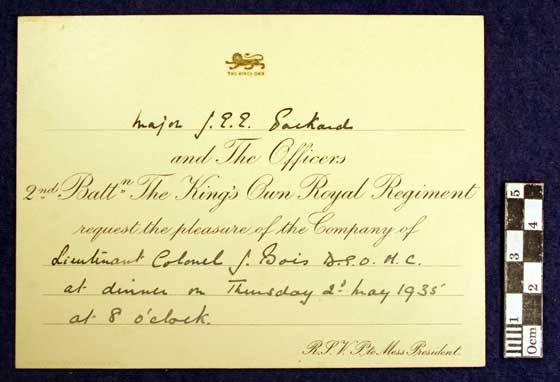 THE KING'S OWN
Major J.E.E. Packard
and The Officers
2nd. Battn. The King's Own Royal Regiment
request the pleasure of the Company of
Lieutenant Colonel J. Bois D.S.O. M.C.
at dinner on Thursday 2d May 1935
at 8 o'clock.
R.S.V.P. to Mess President.
0cm 1 2 3 4 5